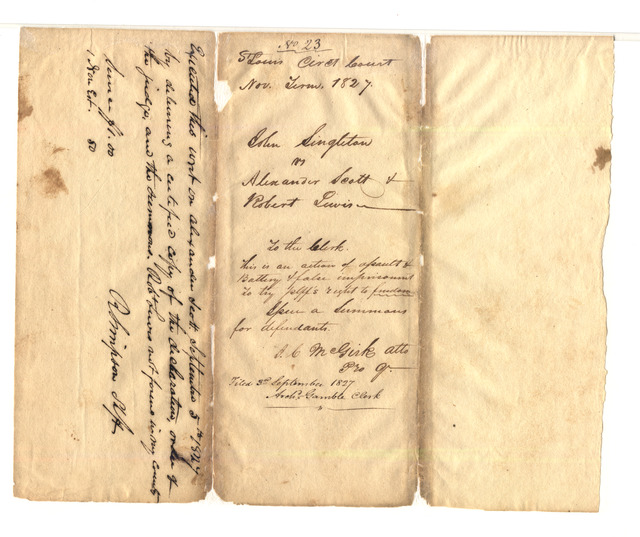 Executed this writ on Alexander Scott September 5th 1827
by delivering a certified copy of the declaration, order of
the judge, and the summons. Robt Lewis not found in my County
Simpson Shff
1 Non Est 50
No 23
St Louis Circt Court
Nov. Term, 1827.
John Singleton
vs
Alexander Scott &
Robert Lewis
To the Clerk.
This is an action of assault &
Battery & false imprisonment
to try plff's right to freedom
Issue a Summons
for defendants.
McGirk atto
Pro q.
Filed 3d September 1827
Archd Gamble Clerk